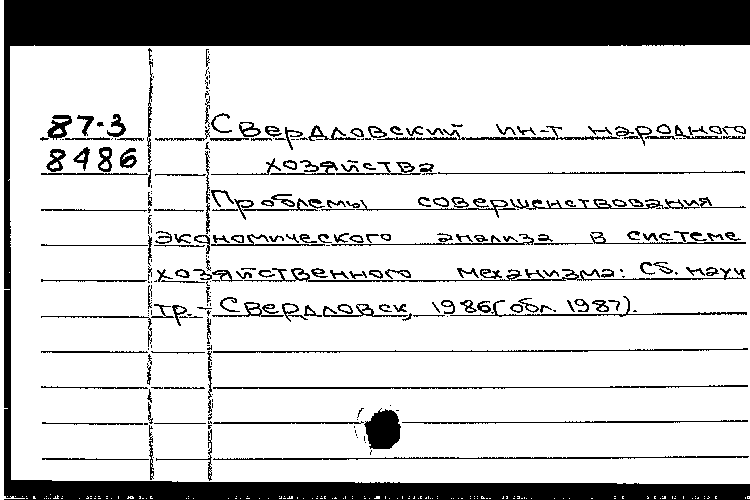 87-3 Свердловский ин-т народного
8486 хозяйства
Проблемы совершенствования
экономического анализа в системе
хозяйственного механизма: Сб. науч
тр. - Свердловск, 1986(обл. 1987).